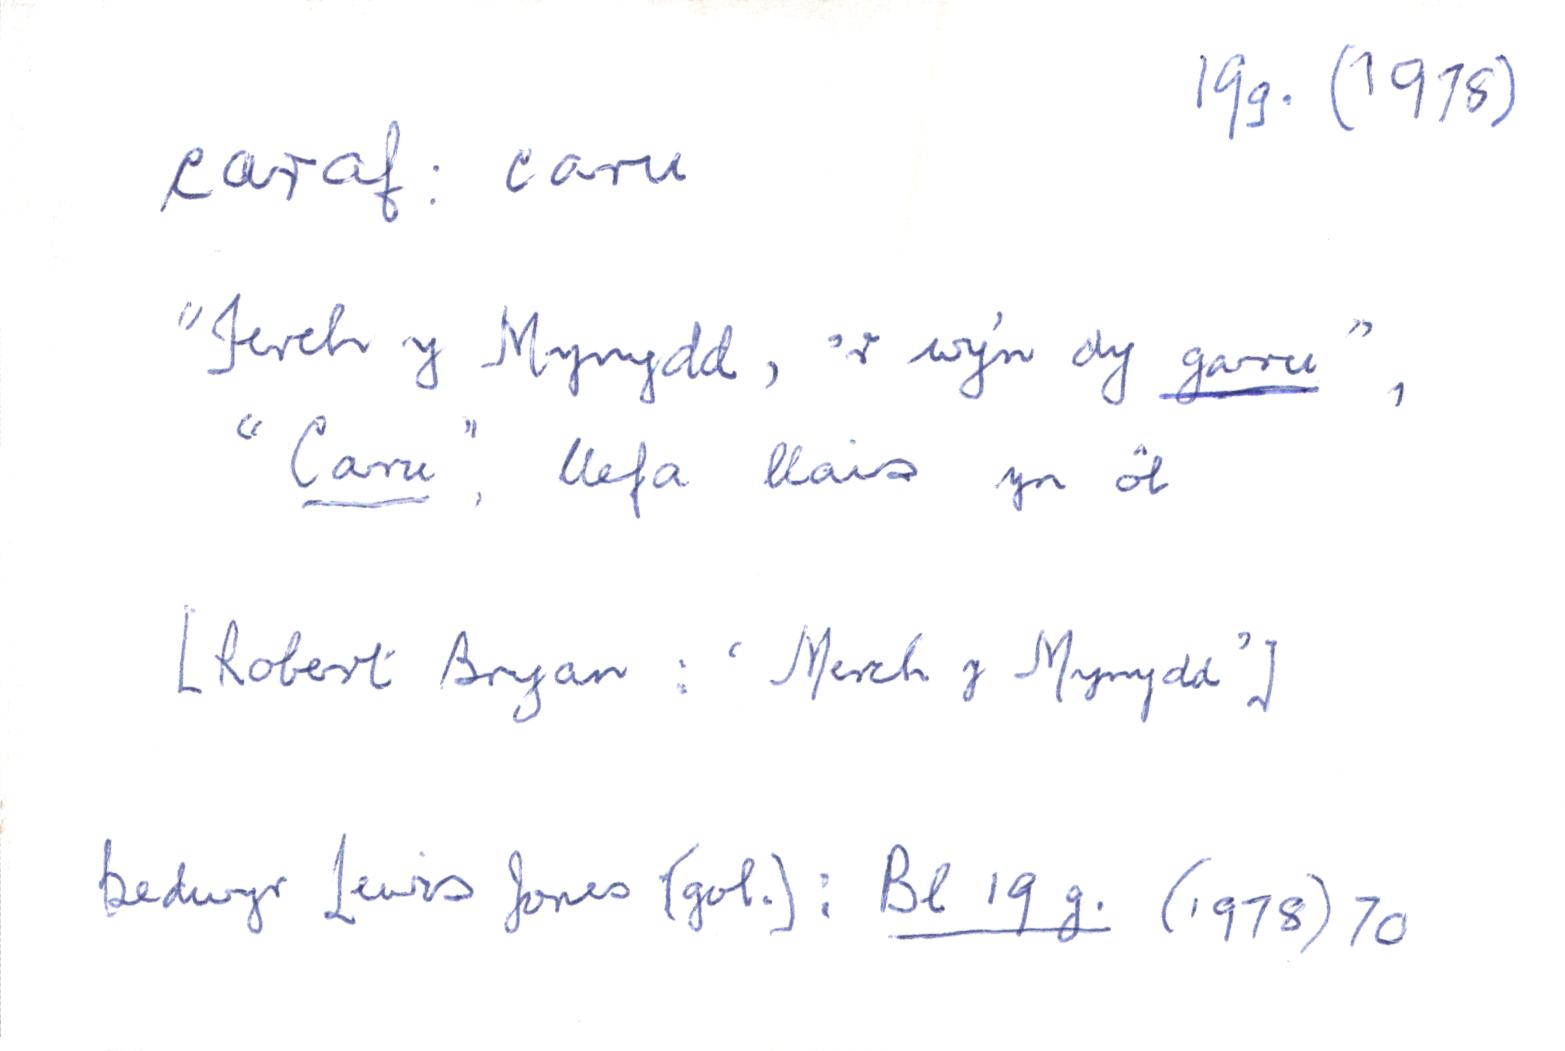 19g. (1978)
caraf: caru
"Ferch y Mynydd, 'r wy'n dy garu",
"Caru", llefa llais yn ôl
[Robert Bryan : 'Merch y Mynydd']
Bedwyr Lewis Jones (gol.): Bl 19 g. (1978) 70